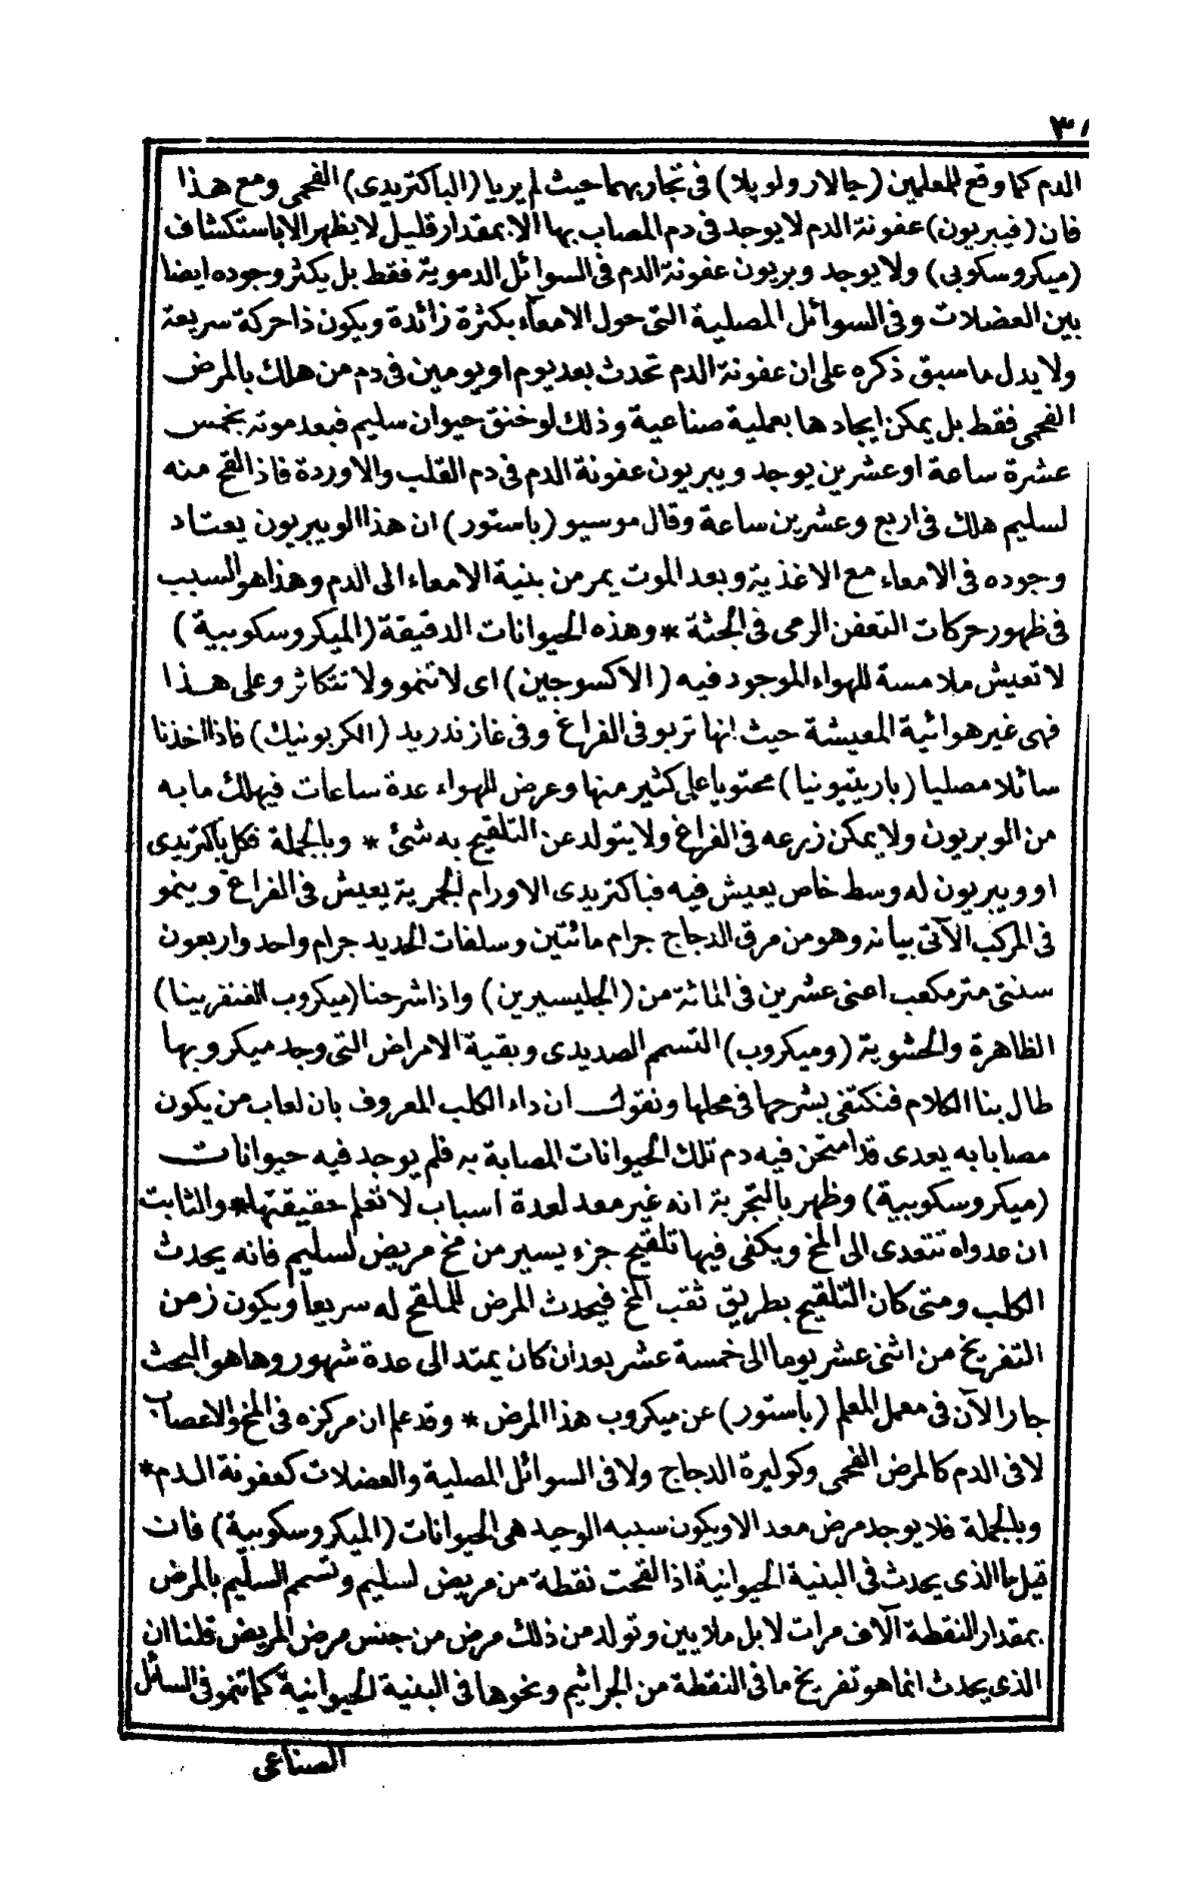 ٣
الدم كما وقع للمعلمين (جالار ولوپلا) فى تجاربهما حيث لم يريا (الباكتريدى) الفحمى ومع هذا
فان (فيبريون) عفونة الدم لا يوجد فى دم المصاب بها الا بمقدار قليل لا يظهر الا باستكشاف
(ميكروسكوبى) ولا يوجد ويبريون عفونة الدم فى السوائل الدموية فقط بل يكثر وجوده ايضا
بين العضلات وفى السوائل المصلية التى حول الامعاء بكثرة زائدة ويكون ذا حركة سريعة
ولا يدل ما سبق ذكره على ان عفونة الدم تحدث بعد يوم او يومين فى دم من هلك بالمرض
الفحمى فقط بل يمكن ايجادها بعملية صناعية وذلك لو خنق حيوان سليم فبعد موته بخمس
عشرة ساعة او عشرين يوجد ويبريون عفونة الدم فى دم القلب والاوردة فاذا لقح منه
لسليم هلك فى اربع وعشرين ساعة وقال موسيو (باستور) ان هذا الويبريون يعتاد
وجوده فى الامعاء مع الاغذية وبعد الموت يمر من بنية الامعاء الى الدم وهذا هو السبب
فى ظهور حركات التعفن الرمى فى الجثة * وهذه الحيوانات الدقيقة (الميكروسكوبية)
لا تعيش ملامسة للهواء الموجود فيه (الاكسوجين) اى لا تنمو ولا تتكاثر وعلى هذا
فهى غير هوائية المعيشة حيث انها تربو فى الفراغ وفى غاز ندريد (الكربونيك) فاذا اخذنا
سائلا مصليا (باريتيونيا) محتويا على كثير منها وعرض للهواء عدة ساعات فيهلك ما به
من الويبريون ولا يمكن زرعه فى الفراغ ولا يتولد عن التلقيح به شئ * وبالجملة فكل باكتريدى
او ويبريون له وسط خاص يعيش فيه فباكتريدى الاورام الجمرية يعيش فى الفراغ وينمو
فى المركب الآتى بيانه وهو من مرق الدجاج جرام مائتين وسلفات الحديد جرام واحد واربعون
سنتى متر مكعب اعنى عشرين فى المائة من (الجليسيرين) واذا شرحنا (ميكروب الغنغرينا)
الظاهرة والحشوية (وميكروب) التسمم الصديدى وبقية الامراض التى وجد ميكروبها
طال بنا الكلام فنكتفى بشرحها فى محلها ونقول ان داء الكلب المعروف بان لعاب من يكون
مصابا به يعدى قد امتحن فيه دم تلك الحيوانات المصابة به فلم يوجد فيه حيوانات
(ميكروسكوبية) وظهر بالتجربة انه غير معد لعدة اسباب لا نعلم حقيقتها * والثابت
ان عدواه تتعدى الى المخ ويكفى فيها تلقيح جزء يسير من مخ مريض لسليم فانه يحدث
الكلب ومتى كان التلقيح بطريق ثقب المخ فيحدث المرض للملقح له سريعا ويكون زمن
التفريخ من اثنى عشر يوما الى خمسة عشر بعد ان كان يمتد الى عدة شهور وها هو البحث
جار الآن فى معمل المعلم (باستور) عن ميكروب هذا المرض * وقد علم ان مركزه فى المخ والاعصاب
لا فى الدم كالمرض الفحمى وكوليرة الدجاج ولا فى السوائل المصلية والعضلات كعفونة الدم *
وبالجملة فلا يوجد مرض معد الا ويكون سببه الوحيد هى الحيوانات (الميكروسكوبية) فان
قيل ما الذى يحدث فى البنية الحيوانية اذا لقحت نقطة من مريض لسليم وتسمم السليم بالمرض
بمقدار النقطة آلاف مرات لا بل ملايين وتولد من ذلك مرض من جنس مرض المريض قلنا ان
الذى يحدث انما هو تفريخ ما فى النقطة من الجراثيم ونحوها فى البنية الحيوانية كما تنمو فى السائل
الصناعى